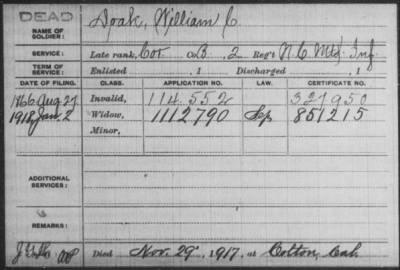 DEAD
NAME OF SOLDIER: Doak, William C.
SERVICE: Late rank, Cor Co. B, 2 Reg't N. C. Mtd. Inf
TERM OF SERVICE: Enlisted , 1 Discharged , 1
DATE OF FILING. CLASS. APPLICATION NO. LAW. CERTIFICATE NO.
1866 Aug 27 Invalid, 114.552 327950
1918 Jan. 2 Widow, 1112790 Sep 851215
Minor,
ADDITIONAL SERVICES:
REMARKS:
Died Nov. 29, 1917, at Colton, Cal.